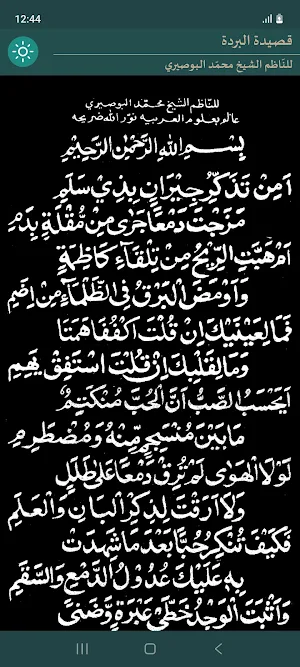 12:44
قصيدة البردة
للنّاظم الشيخ محمّد البوصيري
للنّاظم الشيخ محمّد البوصيري
عالم بعلوم العربيه نوّر الله ضريحه
بِسْمِ اللهِ الرَّحْمٰنِ الرَّحِيْمِ
اَمِنْ تَذَكُّرِ جِيْرَانٍ بِذِيْ سَلَمٍ
مَزَجْتَ دَمْعًا جَرٰى مِنْ مُقْلَةٍ بِدَمِ
اَمْ هَبَّتِ الرِّيْحُ مِنْ تِلْقَاۤءِ كَاظِمَةٍ
وَاَوْمَضَ الْبَرْقُ فِى الظَّلْمَاۤءِ مِنْ اِضَمِ
فَمَا لِعَيْنَيْكَ اِنْ قُلْتَ اكْفُفَا هَمَتَا
وَمَا لِقَلْبِكَ اِنْ قُلْتَ اسْتَفِقْ يَهِمِ
اَيَحْسَبُ الصَّبُّ اَنَّ الْحُبَّ مُنْكَتِمٌ
مَا بَيْنَ مُنْسَجِمٍ مِنْهُ وَمُضْطَرِمِ
لَوْلَا الْهَوٰى لَمْ تُرِقْ دَمْعًا عَلٰى طَلَلٍ
وَلَا اَرِقْتَ لِذِكْرِ الْبَانِ وَالْعَلَمِ
فَكَيْفَ تُنْكِرُ حُبًّا بَعْدَ مَا شَهِدَتْ
بِهٖ عَلَيْكَ عُدُوْلُ الدَّمْعِ وَالسَّقَمِ
وَاَثْبَتَ الْوَجْدُ خَطَّيْ عَبْرَةٍ وَّضَنًى